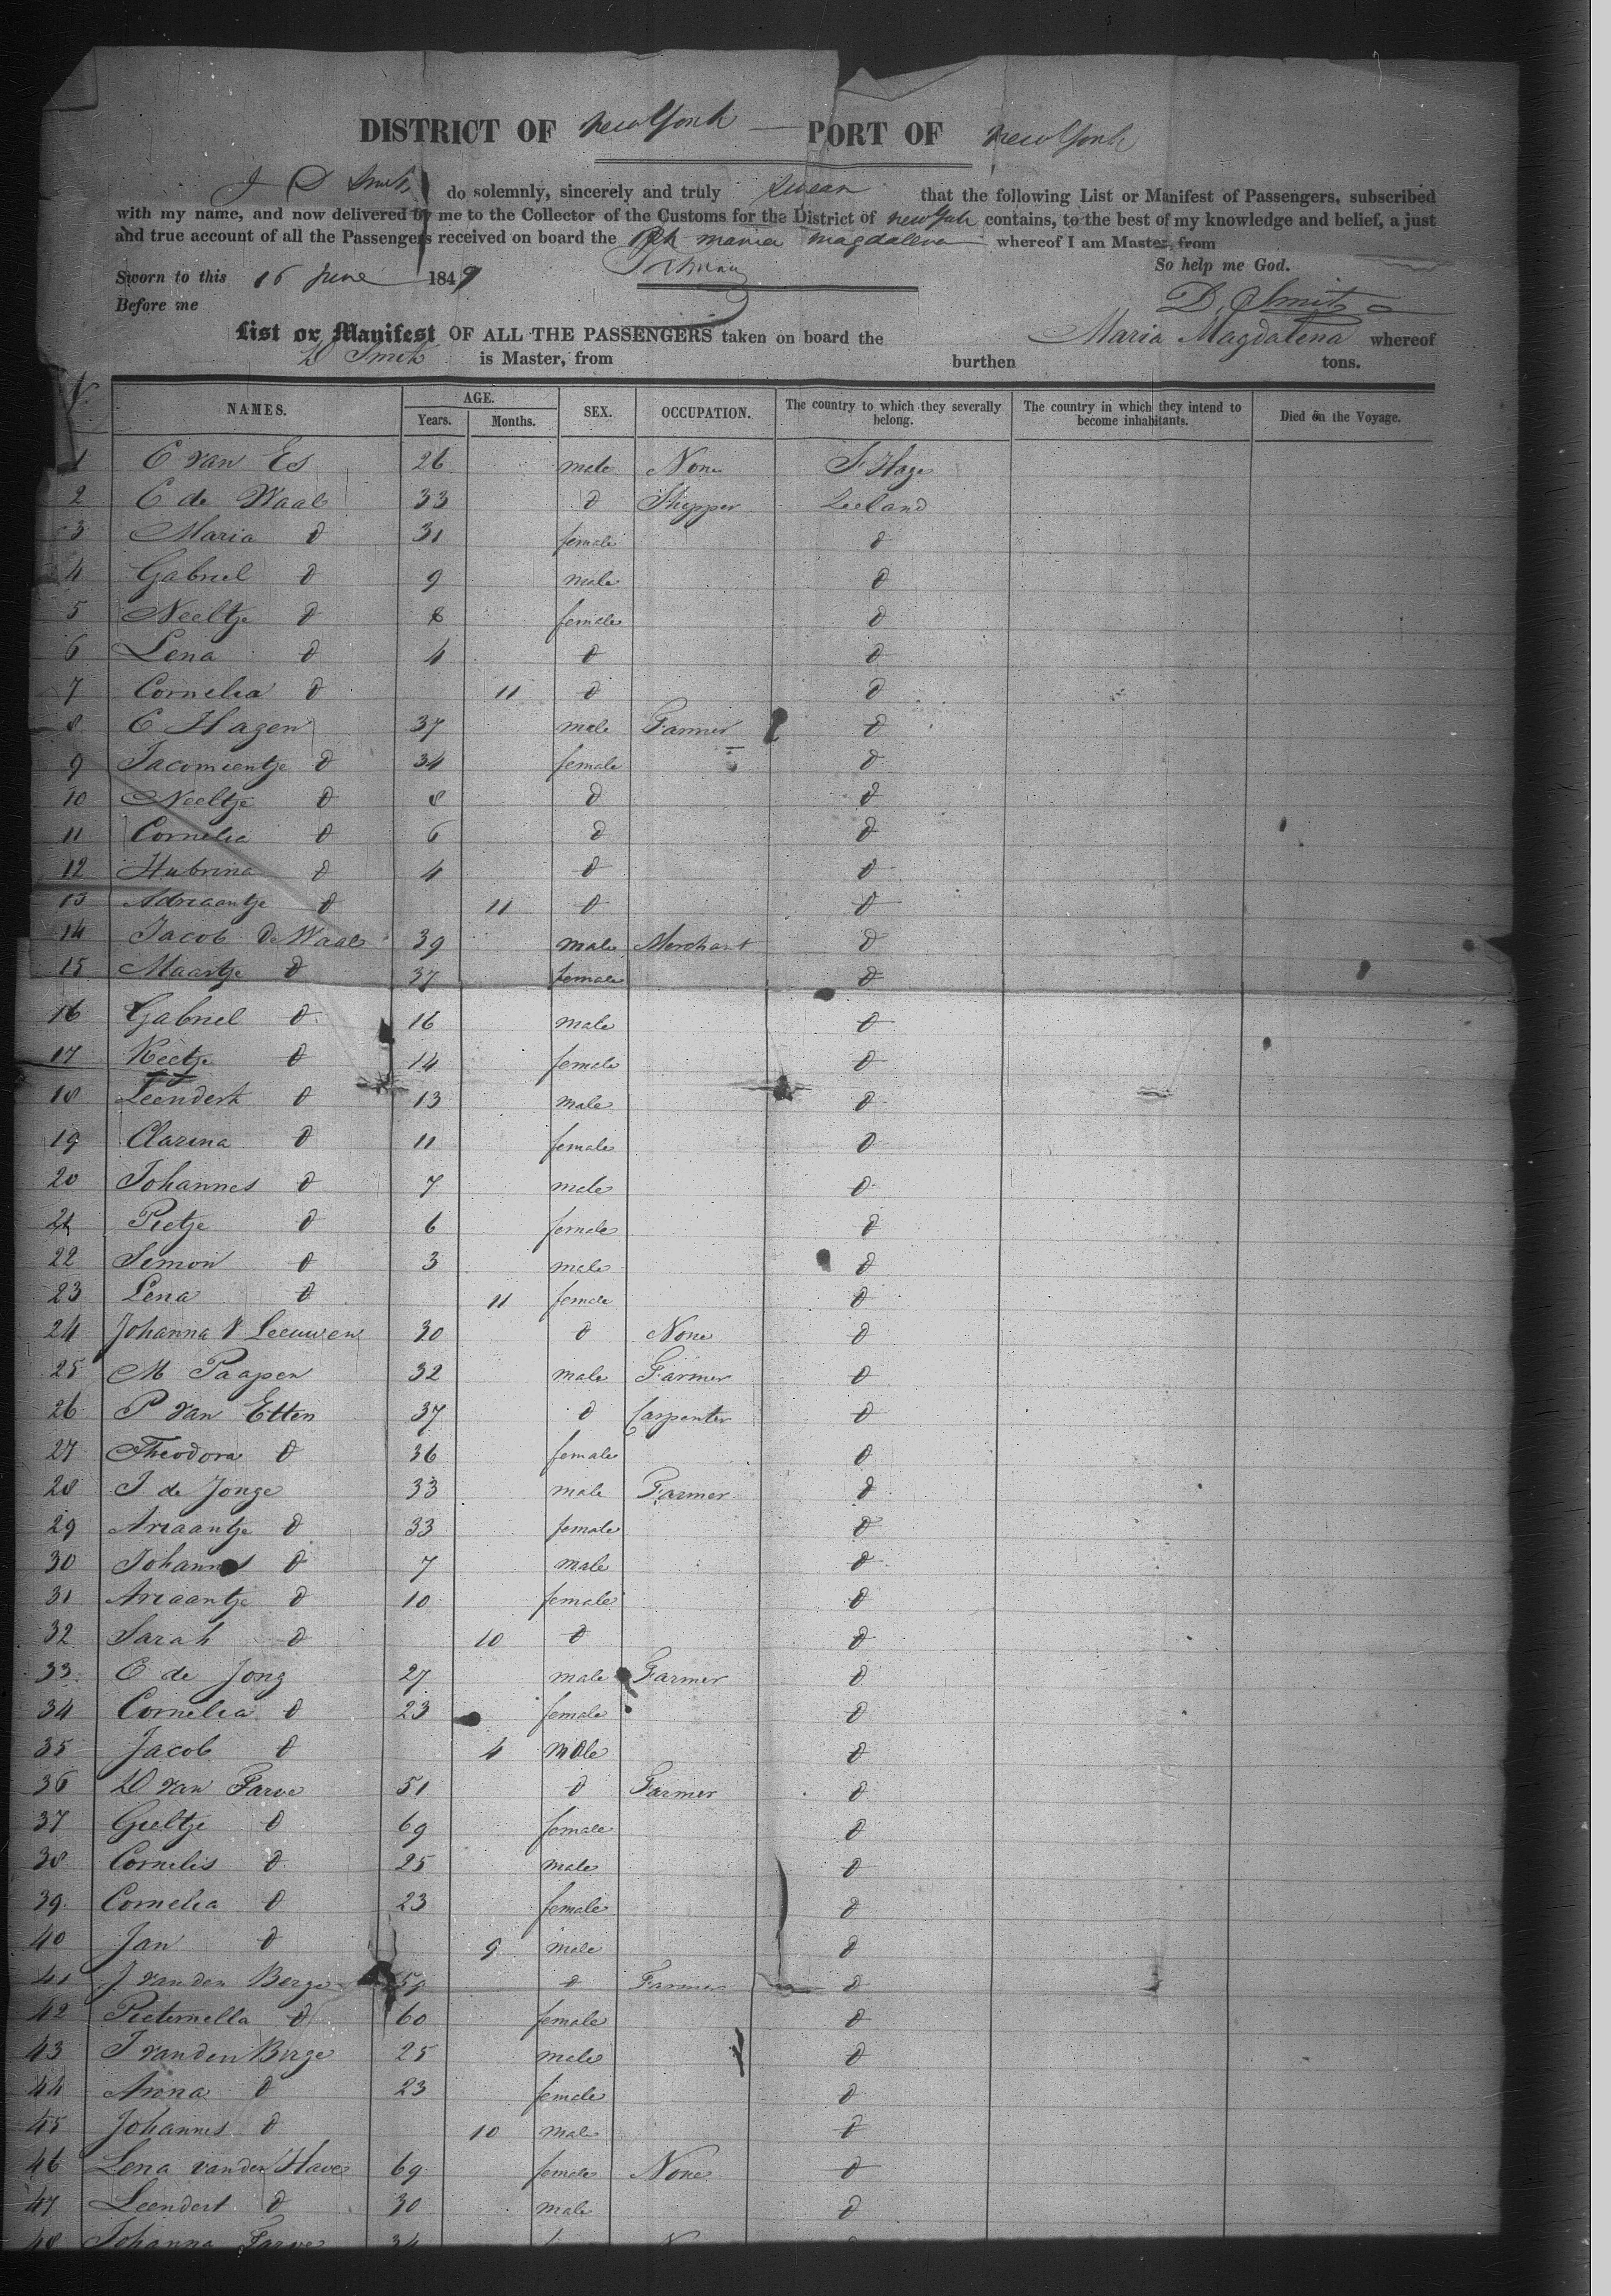 DISTRICT OF New York — PORT OF New York
I D Smith do solemnly, sincerely and truly Swear that the following List or Manifest of Passengers, subscribed
with my name, and now delivered by me to the Collector of the Customs for the District of New York contains, to the best of my knowledge and belief, a just
and true account of all the Passengers received on board the maria magdalena whereof I am Master, from
So help me God.
Sworn to this 16 June 1849
Before me
D. Smit
List or Manifest OF ALL THE PASSENGERS taken on board the Maria Magdalena whereof
D Smit is Master, from burthen tons.
NAMES. AGE. Years. Months. SEX. OCCUPATION. The country to which they severally belong. The country in which they intend to become inhabitants. Died on the Voyage.
1 C van Es 26 male None S Hage
2 C de Waal 33 d Zeeland
3 Maria d 31 female d
4 Gabriel d 9 male d
5 Neeltje d 8 female d
6 Lena d 4 d d
7 Cornelia d 11 d d
8 C Hagen 37 male Farmer d
9 Jacomientje d 34 female d
10 Neeltje d 8 d d
11 Cornelia d 6 d d
12 Hubrina d 4 d d
13 Adriaantje d 11 d d
14 Jacob De Waal 39 male Merchant d
15 Maartje d 37 female d
16 Gabriel d 16 male d
17 Keetje d 14 female d
18 Leendert d 13 male d
19 Clarina d 11 female d
20 Johannes d 7 male d
21 Pietje d 6 female d
22 Simon d 3 male d
23 Lena d 11 female d
24 Johanna V Leeuwen 30 d None d
25 M Paapen 32 male Farmer d
26 P van Etten 37 d Carpenter d
27 Theodora d 36 female d
28 J de Jonge 33 male Farmer d
29 Ariaantje d 33 female d
30 Johannes d 7 male d
31 Ariaantje d 10 female d
32 Sarah d 10 d d
33 C de Jong 27 male Farmer d
34 Cornelia d 23 female d
35 Jacob d 4 male d
36 D van Farve 51 d Farmer d
37 Geeltje d 69 female d
38 Cornelis d 25 male d
39 Cornelia d 23 female d
40 Jan d 9 male d
41 J van den Berge d Farmer d
42 Pieternella d 60 female d
43 J van den Berge 25 male d
44 Anna d 23 female d
45 Johannes d 10 male d
46 Lena van den Have 69 female None d
47 Leendert d 30 male d
48 Johanna Farve 34